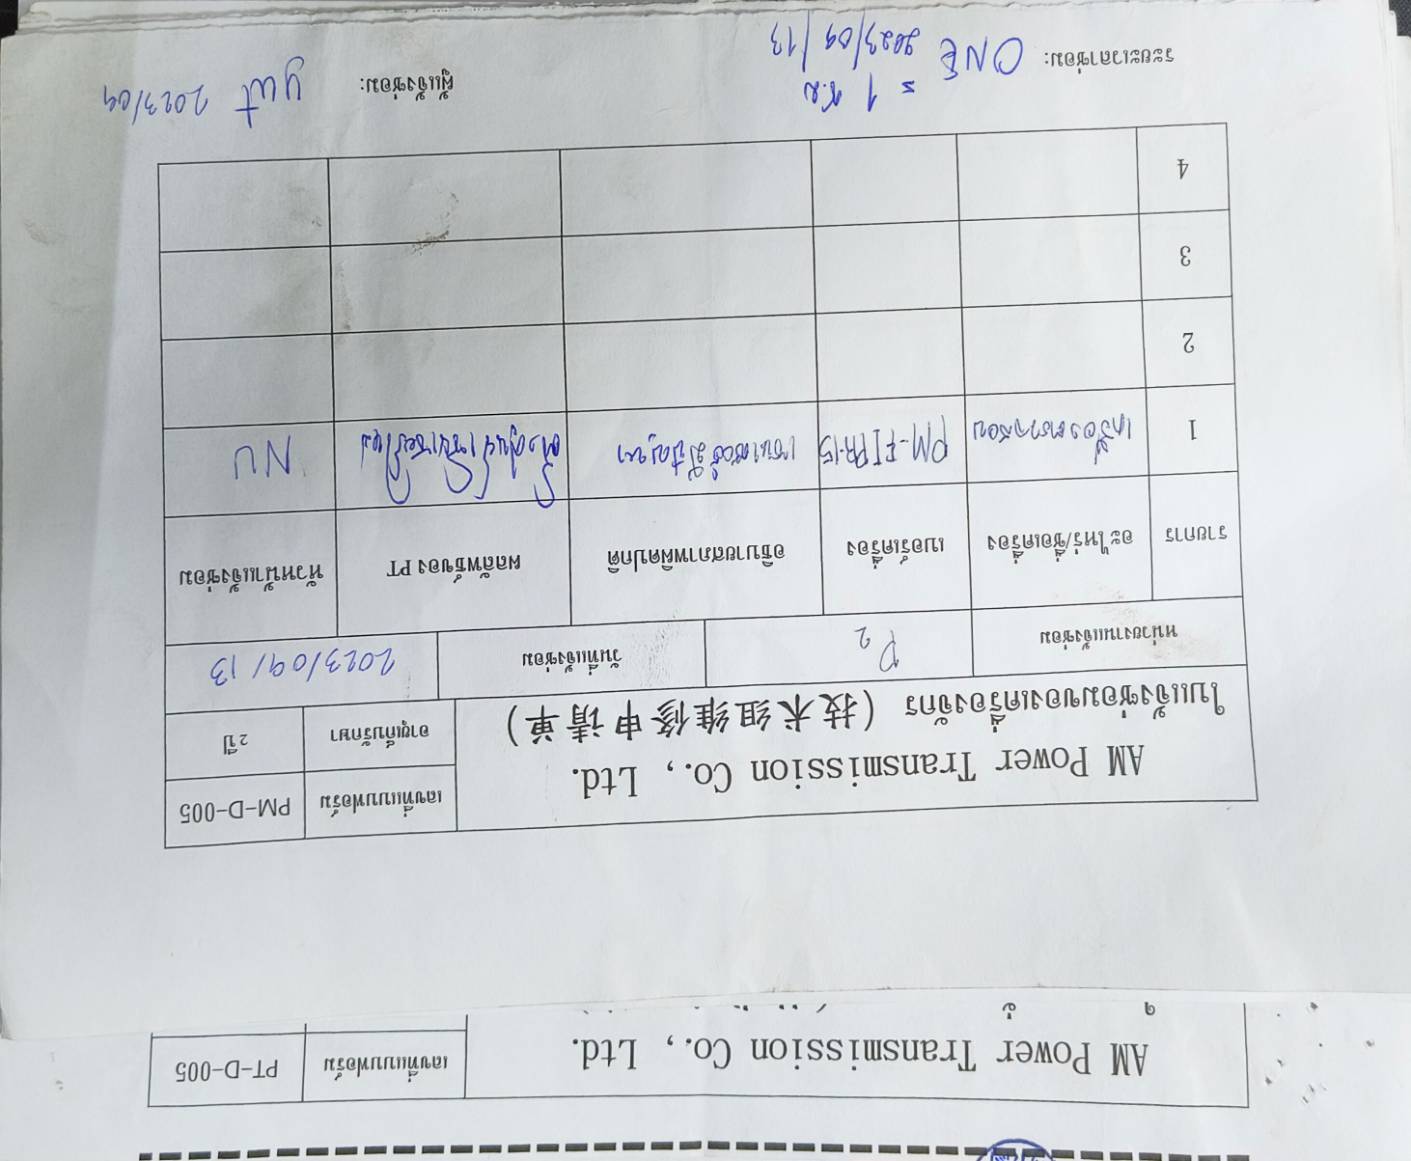 AM Power Transmission Co., Ltd.
เลขที่แบบฟอร์ม PT-D-005
AM Power Transmission Co., Ltd.
ใบแจ้งซ่อมของเครื่องจักร (技术组维修申请单)
เลขที่แบบฟอร์ม PM-D-005
อายุเก็บรักษา 2 ปี
หน่วยงานแจ้งซ่อม P2 วันที่แจ้งซ่อม 2023/09/13
รายการ อะไหร่/ชื่อเครื่อง เบอร์เครื่อง อธิบายสภาพผิดปกติ ผลลัพธ์ของ PT หัวหน้าแจ้งซ่อม
1 เครื่องตรวจสอบ PM-FIPR-15 เซนเซอร์มีปัญหา ตั้งศูนย์เซ็นเซอร์ใหม่ NU
2
3
4
ระยะเวลาซ่อม: ONE = 1 ช.ม
2023/09/13
ผู้แจ้งซ่อม: yut 2023/09